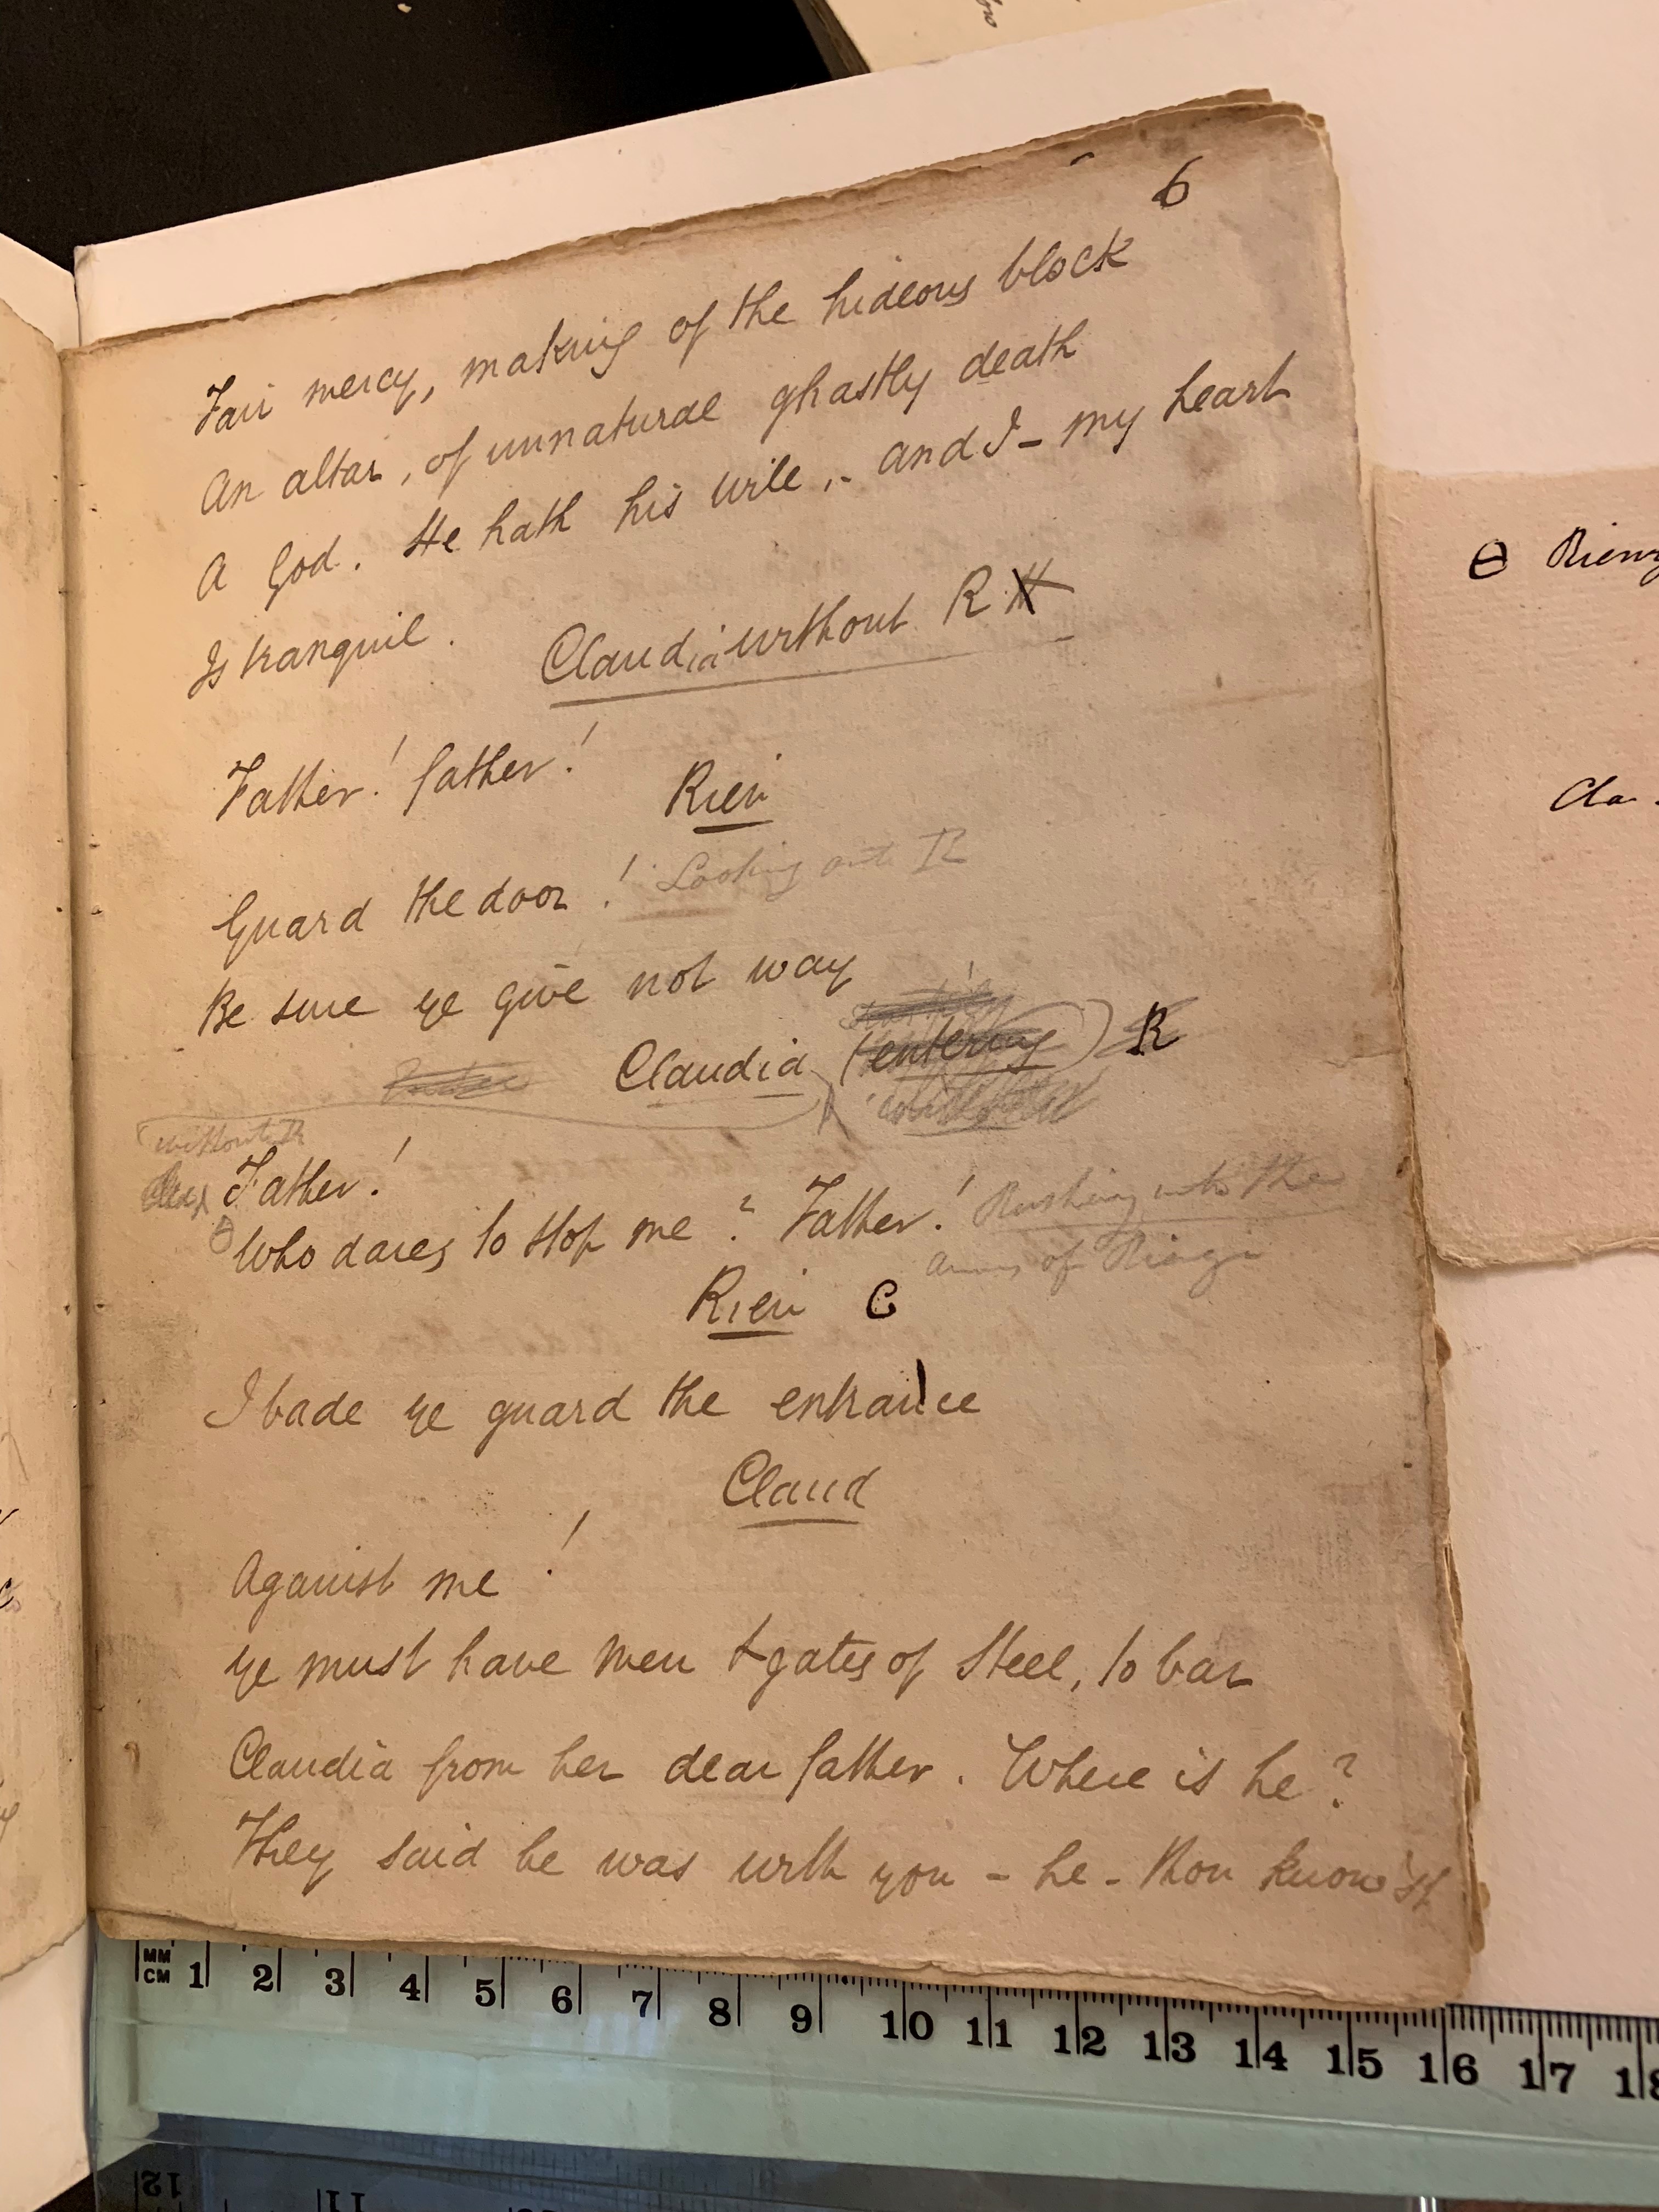 6
Fair mercy, making of the hideous block
An altar, of unnatural ghastly death
A God. He hath his will, - and I - my heart
Is tranquil.
Claudia without R
Father! father!
Rien
Guard the door! Looking out R
Be sure ye give not way
Claudia (entering) R
without R
Father!
Who dares to stop me? Father! Rushing into the
arms of Rienzi
Rien C
I bade ye guard the entrance
Claud
Against me!
Ye must have men & gates of Steel, to bar
Claudia from her dear father. Where is he?
They said he was with you - he - thou know'st
Θ Rienz
Cla.
MM
CM 1 2 3 4 5 6 7 8 9 10 11 12 13 14 15 16 17 18
12 11